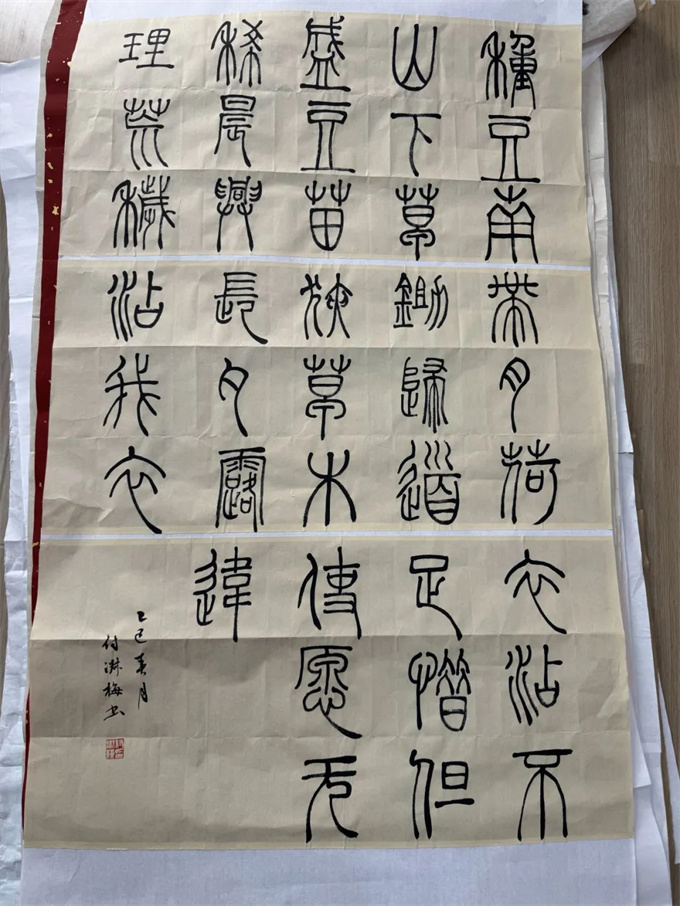 種豆南
山下草
盛豆苗
稀晨興
理荒穢
帶月荷
鋤歸道
狹草木
長夕露
沾我衣
衣沾不
足惜但
使愿无
違
乙巳春月
付梅书